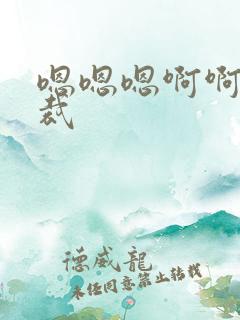 嗯嗯嗯啊啊
裁
德威龍
未经同意禁止转载